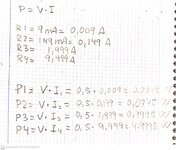 P = V · I
R1 = 9 mA = 0,009 A
R2 = 149 mA = 0,149 A
R3 = 1,999 A
R4 = 9,999 A
P1 = V · I₁ = 0,5 · 0,009 =
P2 = V · I₂ = 0,5 · 0,149 = 0,0745
P3 = V · I₃ = 0,5 · 1,999 = 0,9995
P4 = V · I₄ = 0,5 · 9,999 = 4,9995